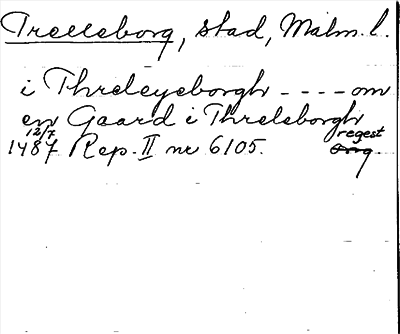 Trelleborg, stad, Malm. l.
i Threleyeborgh - - - - om
en Gaard i Threleborgh
12/7 regest
1487 Rep. II nr 6105. Orig.